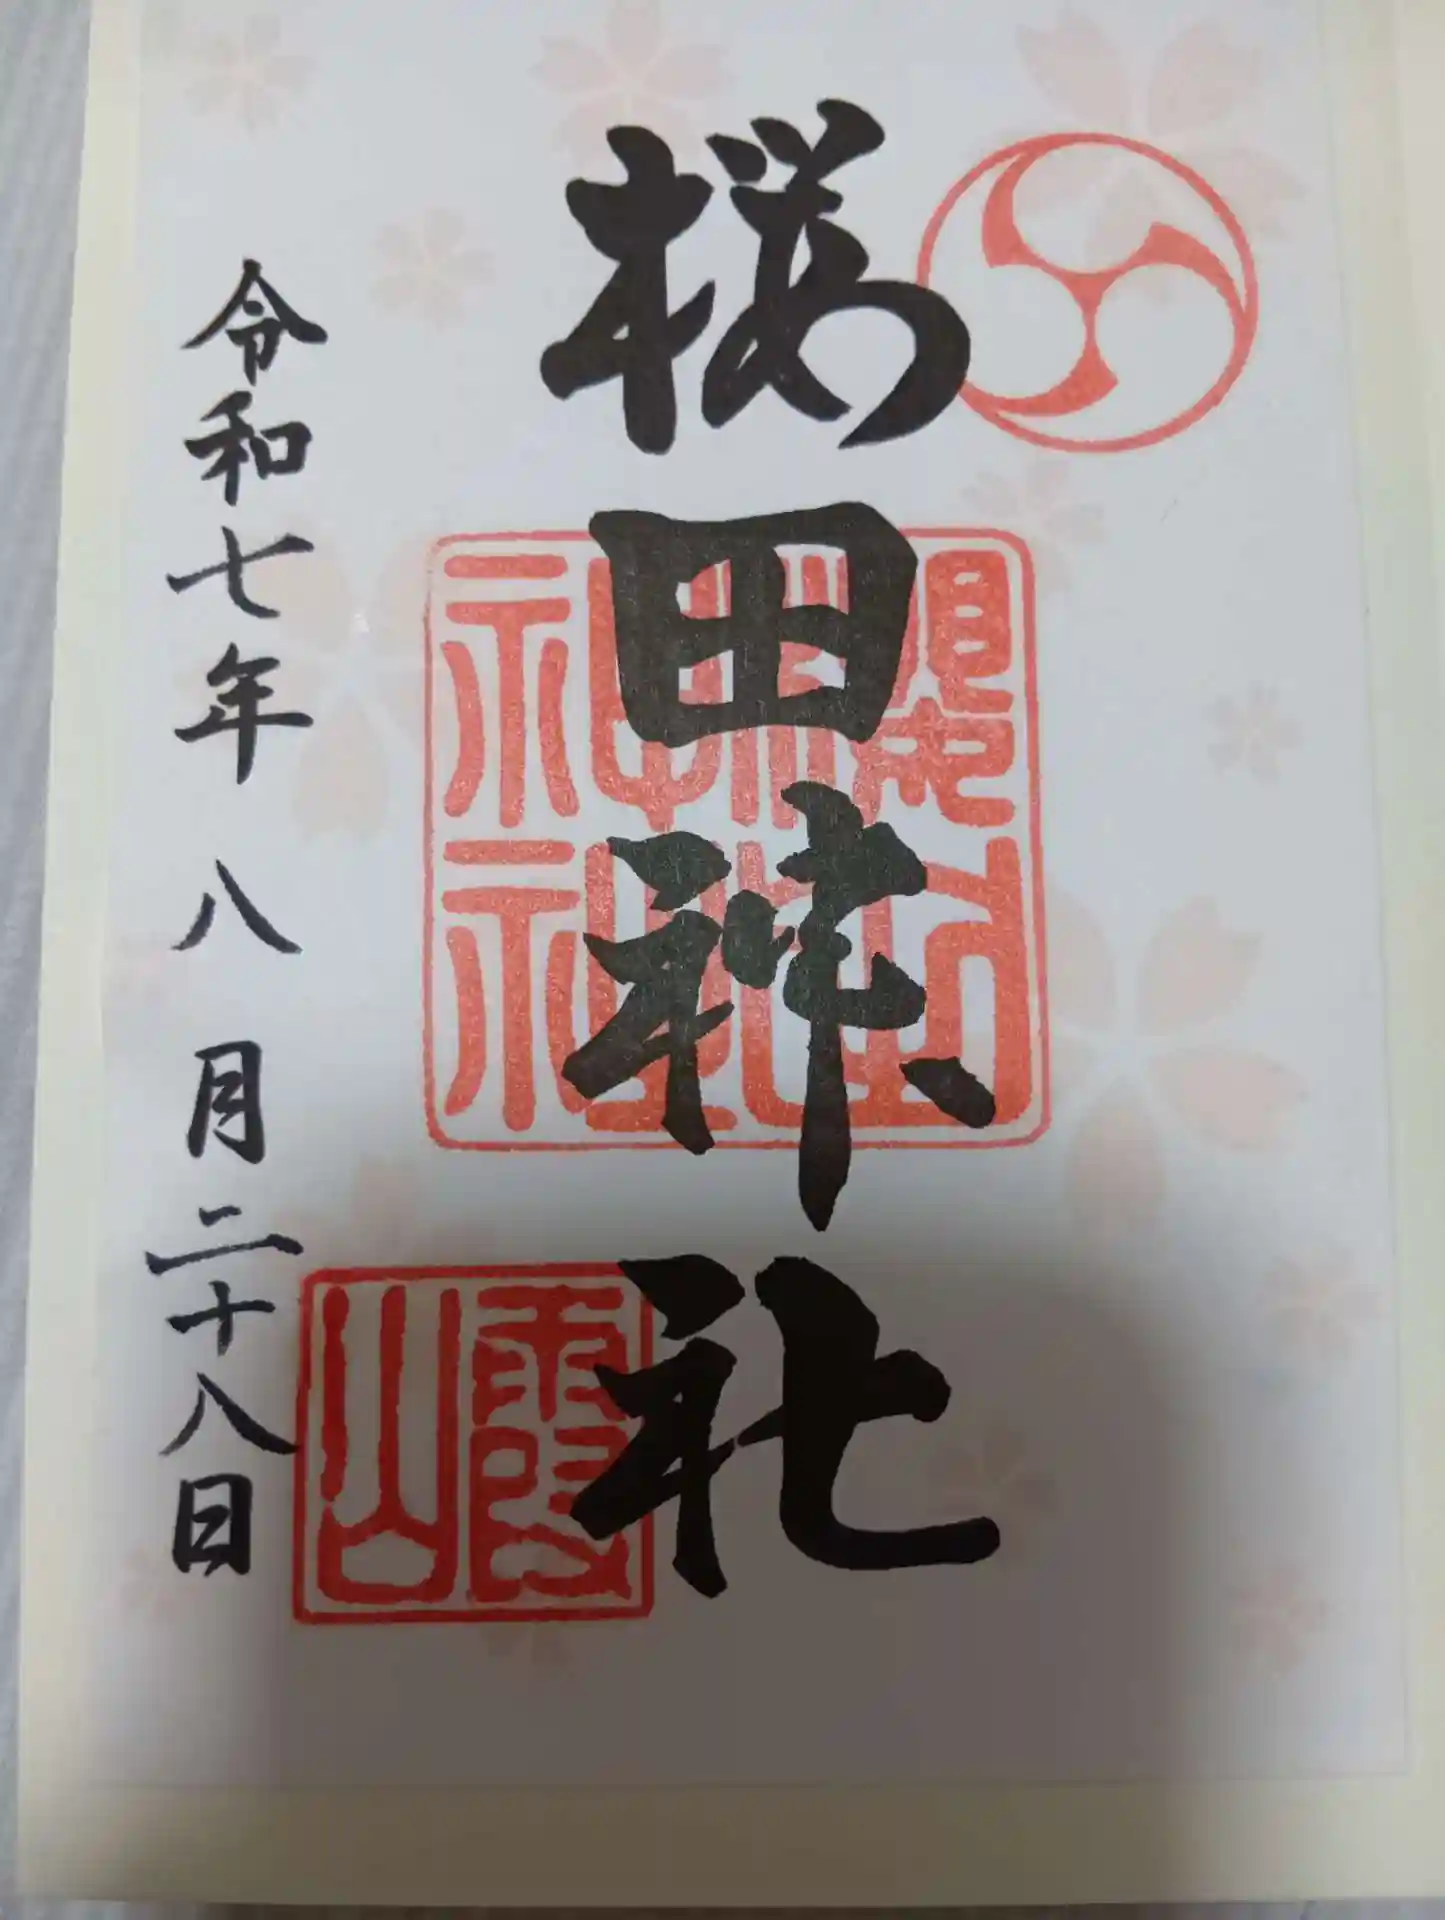 桜田神社
櫻
神社
霞山
令和七年八月二十八日